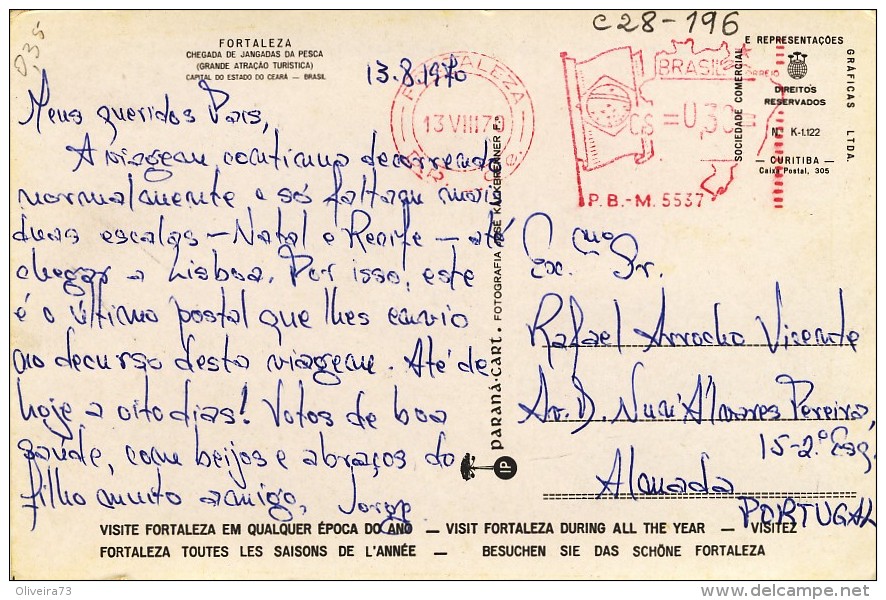 C28-196
0,35
FORTALEZA
CHEGADA DE JANGADAS DA PESCA
(GRANDE ATRAÇÃO TURÍSTICA)
CAPITAL DO ESTADO DO CEARÁ — BRASIL
13.8.1970
Meus queridos Pais,
A viagem continua decorrendo
normalmente e só faltam mais
duas escalas – Natal e Recife – até
chegar a Lisboa. Por isso, este
é o último postal que lhes envio
no decurso desta viagem. Até de
hoje a oito dias! Votos de boa
saúde, com beijos e abraços do
filho muito amigo, Jorge
FORTALEZA
13 VIII 70
BRASIL
CORREIO
CS =0,30=
P.B.-M. 5537
SOCIEDADE COMERCIAL E REPRESENTAÇÕES
GRÁFICAS LTDA.
DIREITOS
RESERVADOS
N.º K-1.122
— CURITIBA —
Caixa Postal, 305
PARANÁ-CART. FOTOGRAFIA JOSE KALKBRENNER F.º
IP
Ex.mo Sr.
Rafael Arrocho Vicente
Av. D. Nun'Álvares Pereira,
15-2.º Esq.
Almada
PORTUGAL
VISITE FORTALEZA EM QUALQUER ÉPOCA DO ANO — VISIT FORTALEZA DURING ALL THE YEAR — VISITEZ
FORTALEZA TOUTES LES SAISONS DE L'ANNÉE — BESUCHEN SIE DAS SCHÖNE FORTALEZA
Oliveira73
www.delcampe.net